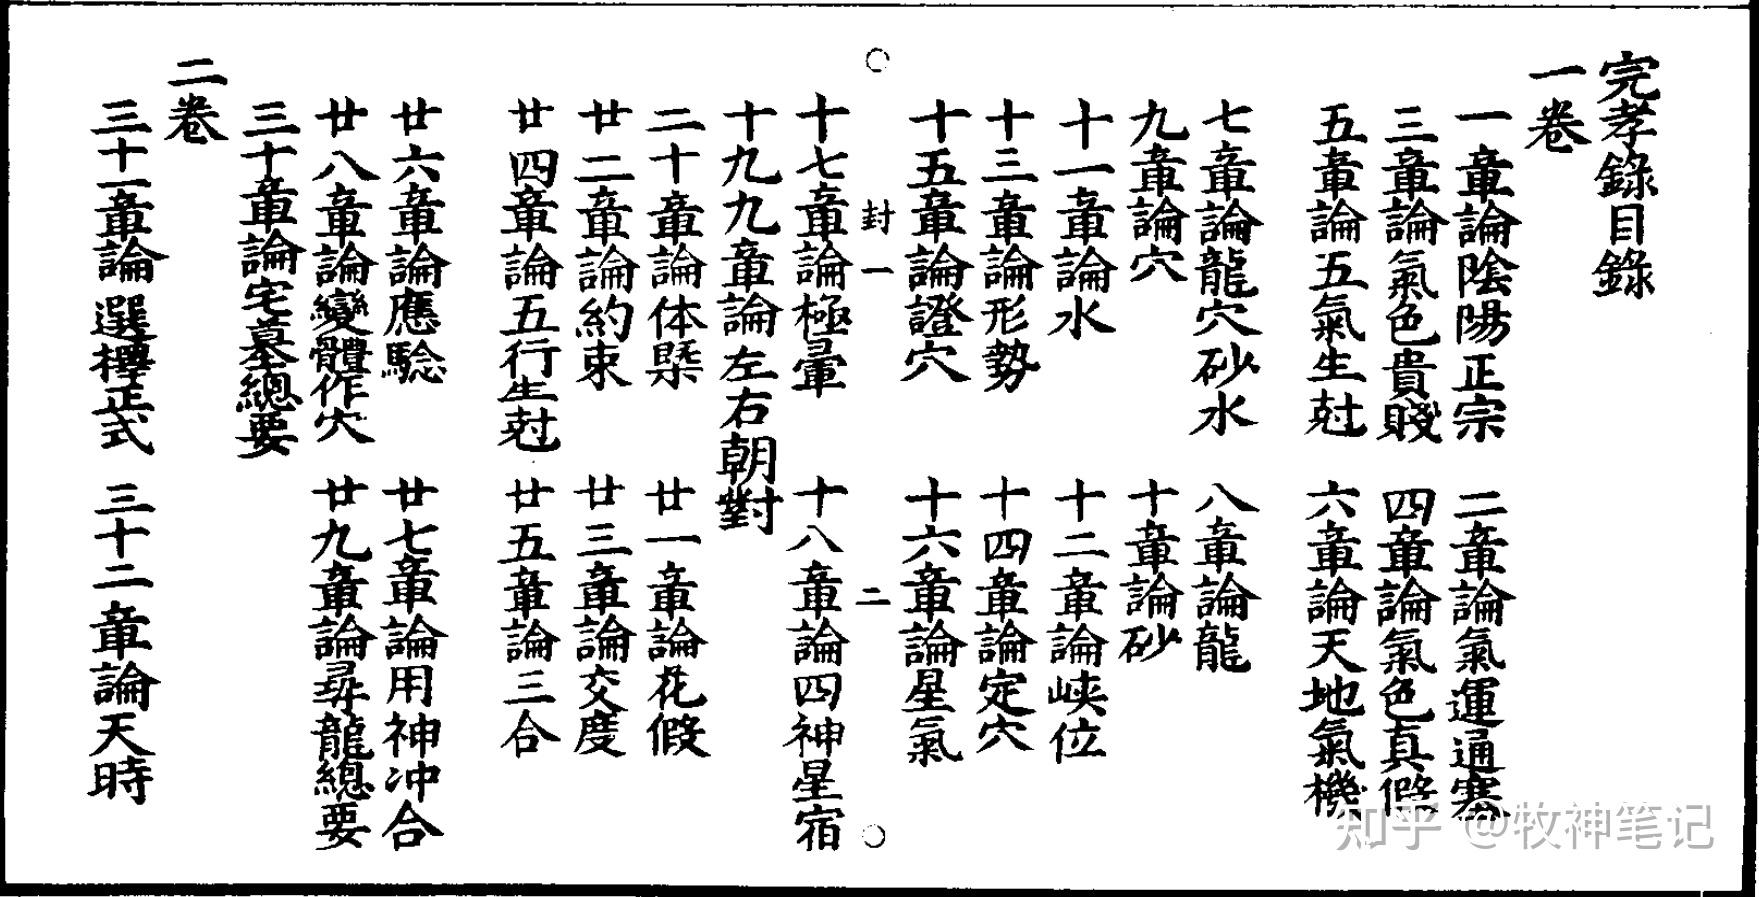 完孝錄目錄
一卷
一章論陰陽正宗 二章論氣運通塞
三章論氣色貴賤 四章論氣色真假
五章論五氣生尅 六章論天地氣機
七章論龍穴砂水 八章論龍
九章論穴 十章論砂
十一章論水 十二章論峡位
十三章論形勢 十四章論定穴
十五章論證穴 十六章論星氣
封一 二
十七章論極暈 十八章論四神星宿
十九九章論左右朝對
二十章論体㮣 廿一章論花假
廿二章論約束 廿三章論交度
廿四章論五行生尅 廿五章論三合
廿六章論應驗 廿七章論用神冲合
廿八章論變體作穴 廿九章論尋龍總要
三十章論宅墓總要
二卷
三十一章論選擇正式 三十二章論天時
知乎 @牧神笔记